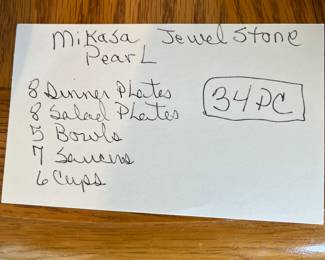 Mikasa Jewel Stone
Pearl
8 Dinner Plates
8 Salad Plates
34 PC
5 Bowls
7 Saucers
6 Cups